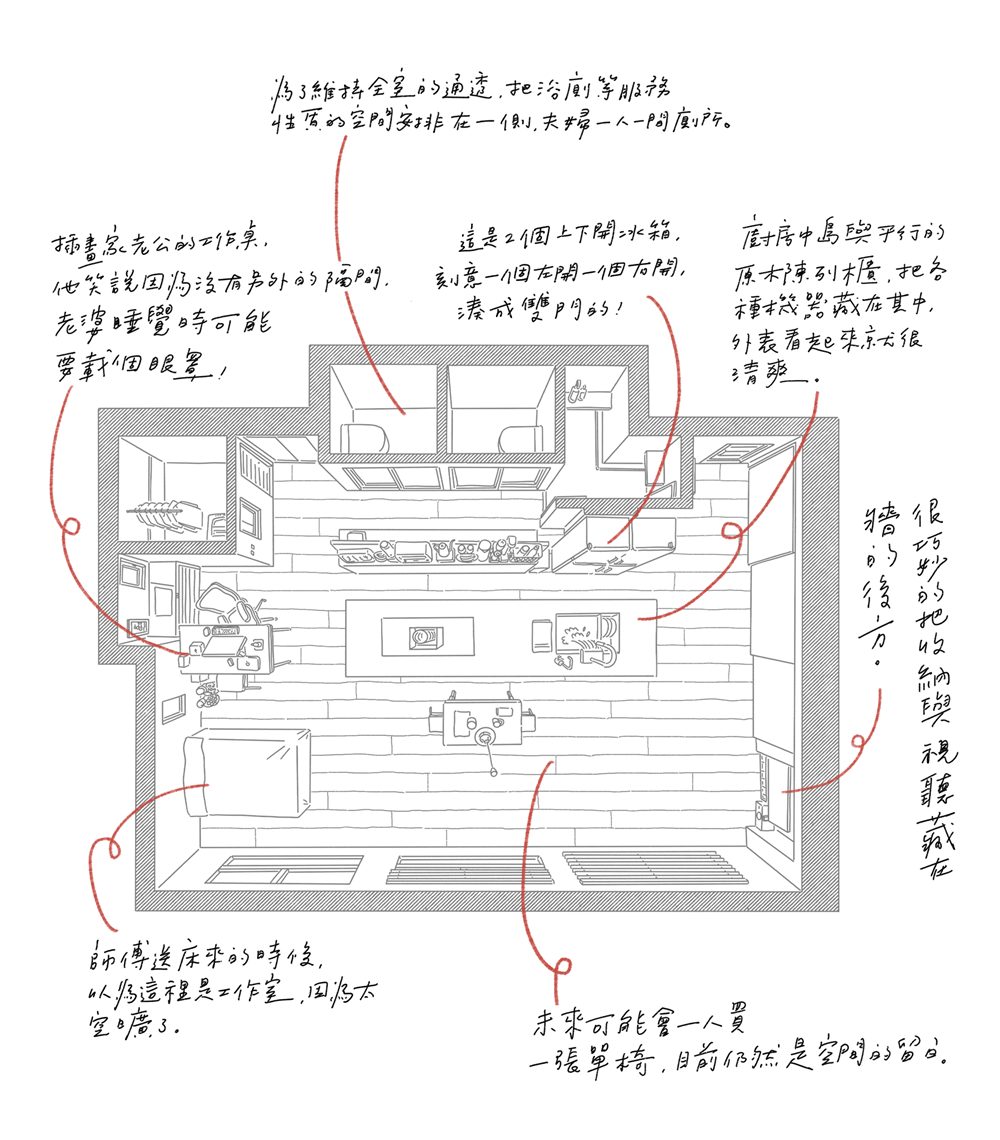 為了維持全室的通透,把浴廁等服務
性質的空間安排在一側,夫婦一人一間廁所。
插畫家老公的工作桌,
他笑說因為沒有另外的隔間,
老婆睡覺時可能
要載個眼罩!
這是2個上下開冰箱,
刻意一個左開一個右開,
湊成雙門的!
廚房中島與平行的
原木陳列櫃,把各
種機器藏在其中,
外表看起來就很
清爽。
很巧妙的把收納與視聽藏在
牆的後方。
師傅送床來的時候,
以為這裡是工作室,因為太
空曠了。
未來可能會一人買
一張單椅,目前仍然是空間的留白。